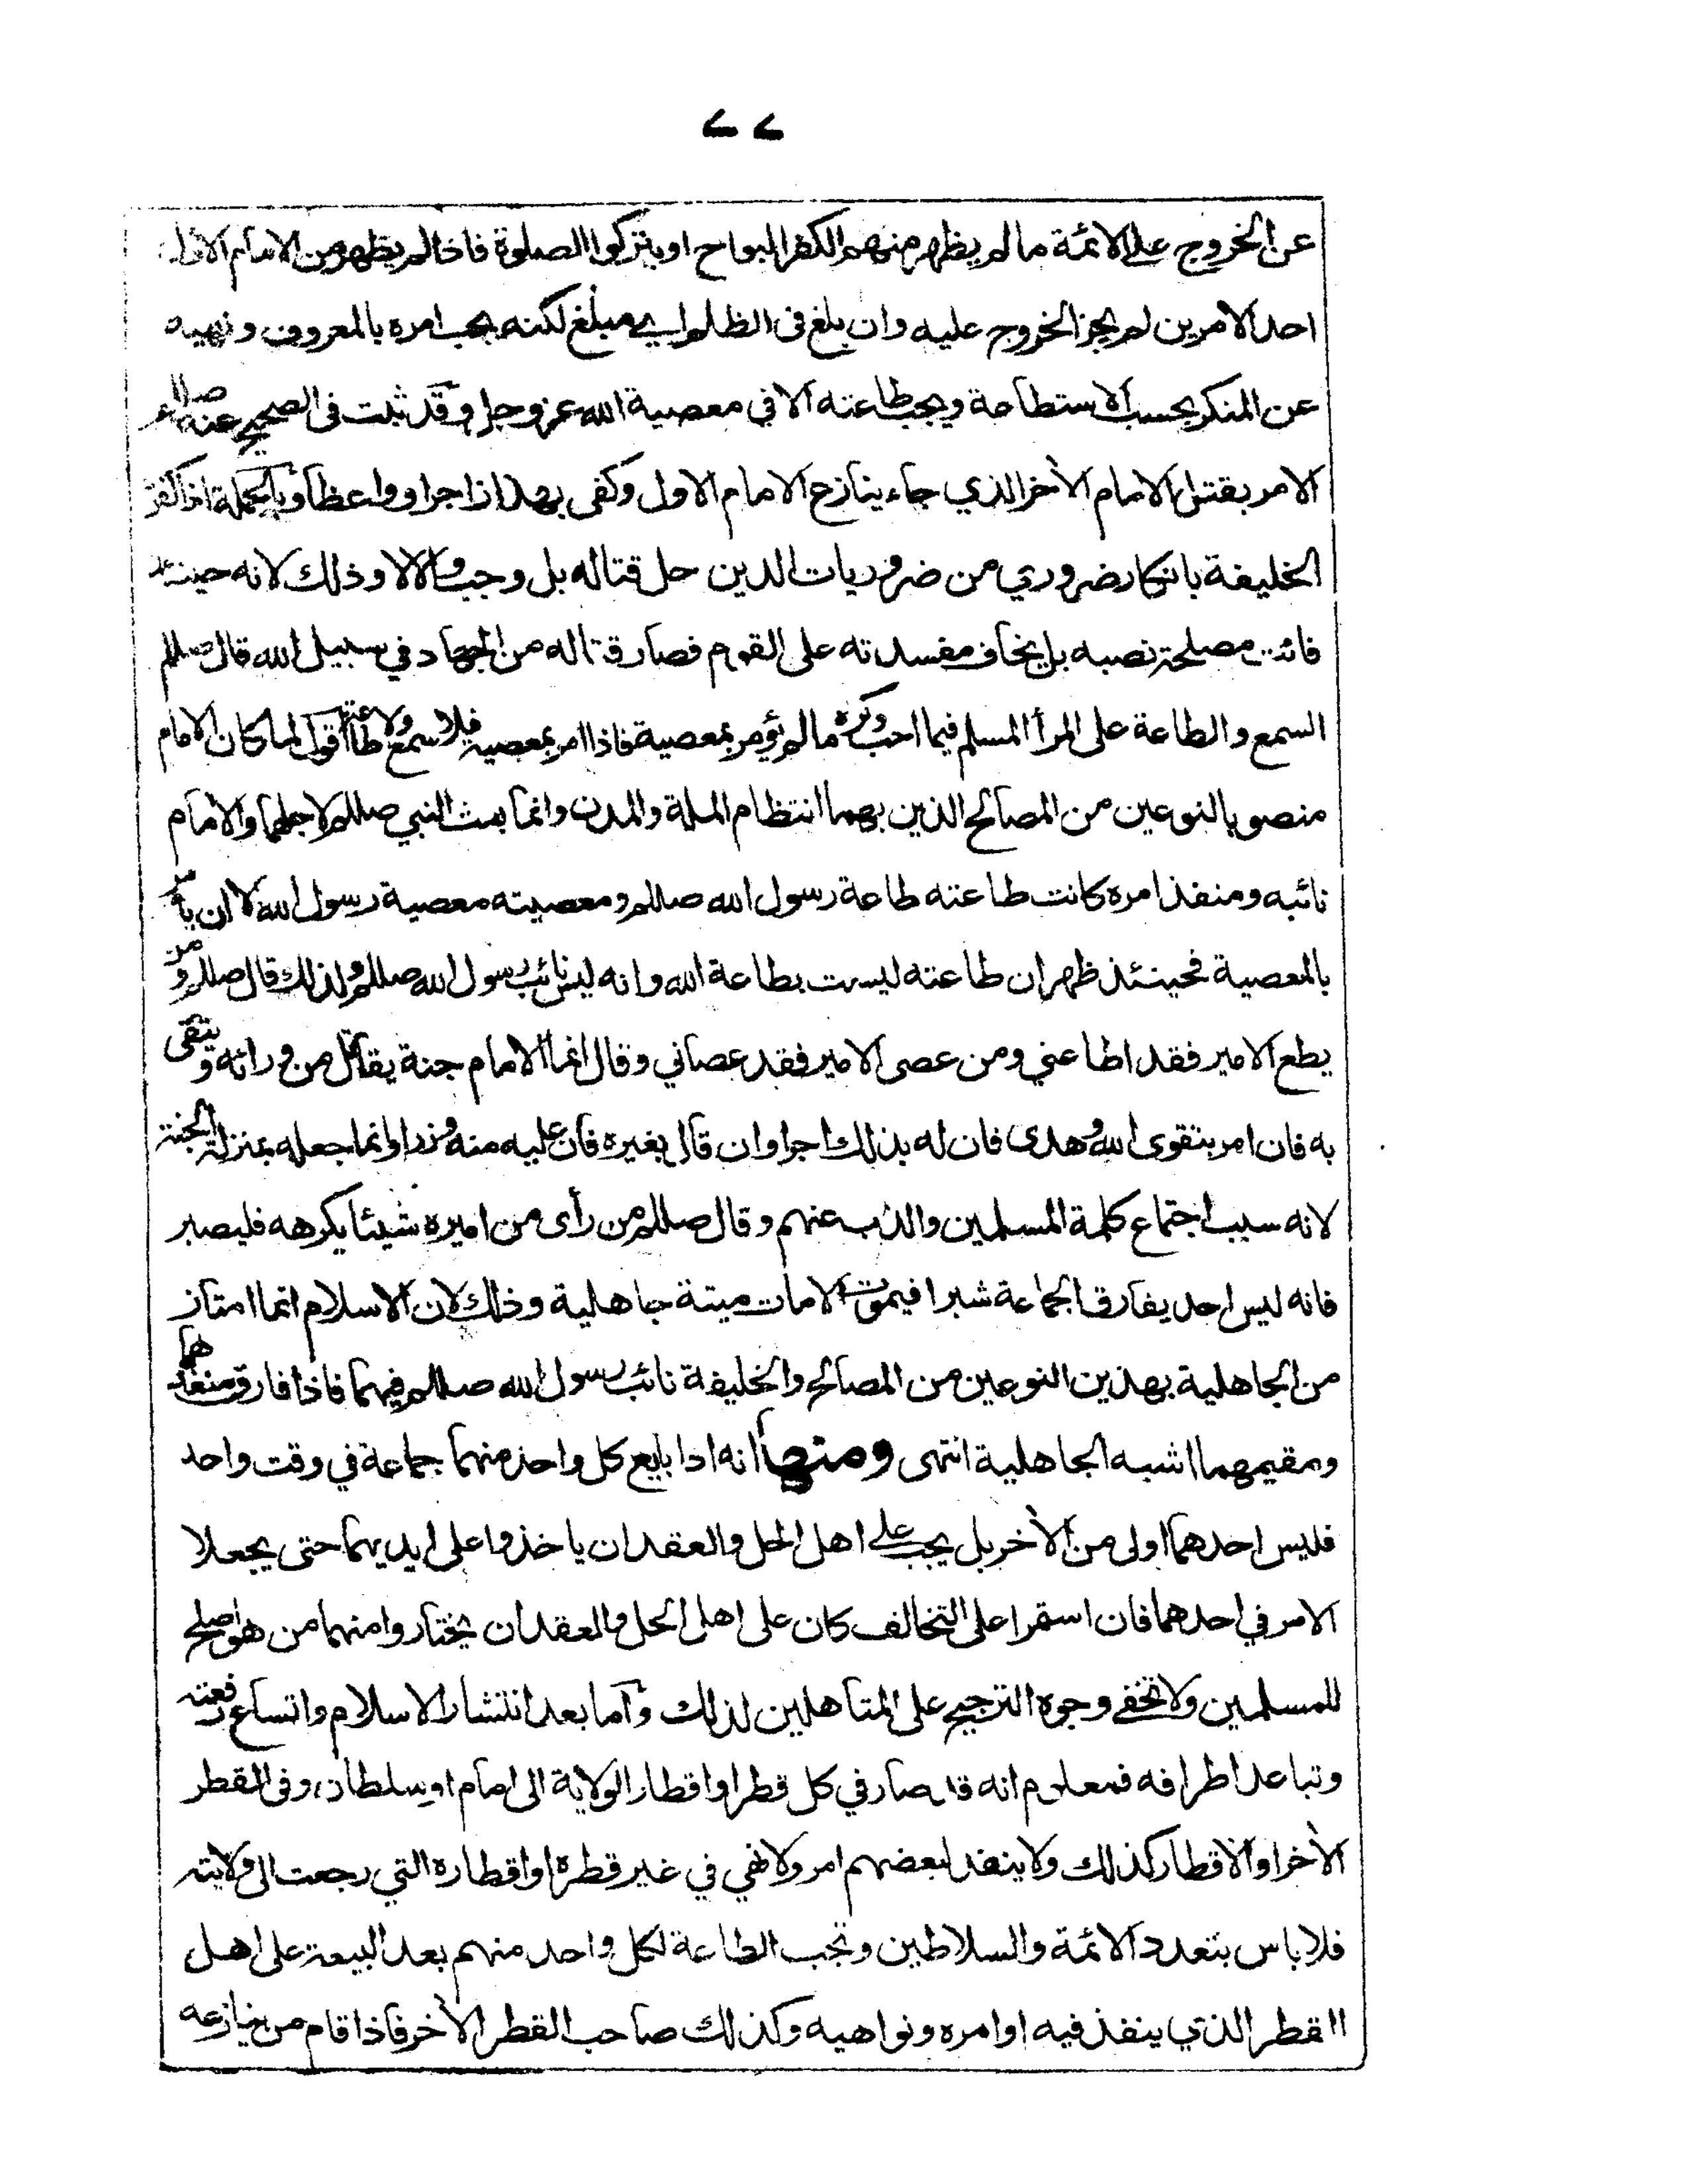 ٢٢
عن الخروج على الائمة ما لم يظهر منهم الكفر البواح او يتركوا الصلوة فاذا لم يظهر من الامام الاول
احد الامرين لم يجز الخروج عليه وان بلغ فى الظلم اي مبلغ لكنه يجب امره بالمعروف ونهيه
عن المنكر بحسب الاستطاعة ويجب طاعته الا في معصية الله عز وجل وقد ثبت فى الصحيح عنه صللم
الامر بقتل الامام الآخر الذي جاء ينازع الامام الاول وكفى بهذا زاجرا وواعظا وبالجملة اذا كفر
الخليفة بانكار ضروري من ضروريات الدين حل قتاله بل وجب والا لا وذلك لانه حينئذ
فاتت مصلحة نصبه بل يخاف مفسدته على القوم فصار قتاله من الجهاد في سبيل الله قال صللم
السمع والطاعة على المرأ المسلم فيما احب وكره ما لم يؤمر بمعصية فاذا امر بمعصية فلا سمع ولا طاعة اقول لما كان الامام
منصوبا لنوعين من المصالح الذين بهما انتظام الملة والمدن وانما بعث النبي صللم لاجلهما والامام
نائبه ومنفذ امره كانت طاعته طاعة رسول الله صللم ومعصيته معصية رسول الله الا ان يأمر
بالمعصية فحينئذ ظهر ان طاعته ليست بطاعة الله وانه ليس نائب رسول الله صللم ولذلك قال صللم ومن
يطع الامير فقد اطاعني ومن عصى الامير فقد عصاني وقال انما الامام جنة يقاتل من ورائه ويتقى
به فان امر بتقوى الله وهدى فان له بذلك اجرا وان قال بغيره فان عليه منه وزرا وانما جعله بمنزلة الجنة
لانه سبب اجتماع كلمة المسلمين والذب عنهم وقال صللم من رأى من اميره شيئا يكرهه فليصبر
فانه ليس احد يفارق الجماعة شبرا فيموت الا مات ميتة جاهلية وذلك لان الاسلام انما امتاز
من الجاهلية بهذين النوعين من المصالح والخليفة نائب رسول الله صللم فيهما فاذا فارق منفذهما
ومقيمهما اشبه الجاهلية انتهى ومنها انه اذا بايع كل واحد منهما جماعة في وقت واحد
فليس احدهما اولى من الآخر بل يجب على اهل الحل والعقد ان ياخذوا على ايديهما حتى يجعلا
الامر في احدهما فان استمرا على التخالف كان على اهل الحل والعقد ان يختاروا منهما من هو اصلح
للمسلمين ولا تخفى وجوه الترجيح على المتاهلين لذلك وأما بعد انتشار الاسلام واتساع رقعته
وتباعد اطرافه فمعلوم انه قد صار في كل قطر او اقطار الولاية الى امام او سلطان وفى القطر
الآخر او الاقطار كذلك ولا ينفذ لبعضهم امر ولا نهي في غير قطره او اقطاره التي رجعت الى ولايته
فلا باس بتعدد الائمة والسلاطين وتجب الطاعة لكل واحد منهم بعد البيعة على اهل
القطر الذي ينفذ فيه اوامره ونواهيه وكذلك صاحب القطر الآخر فاذا قام من ينازعه